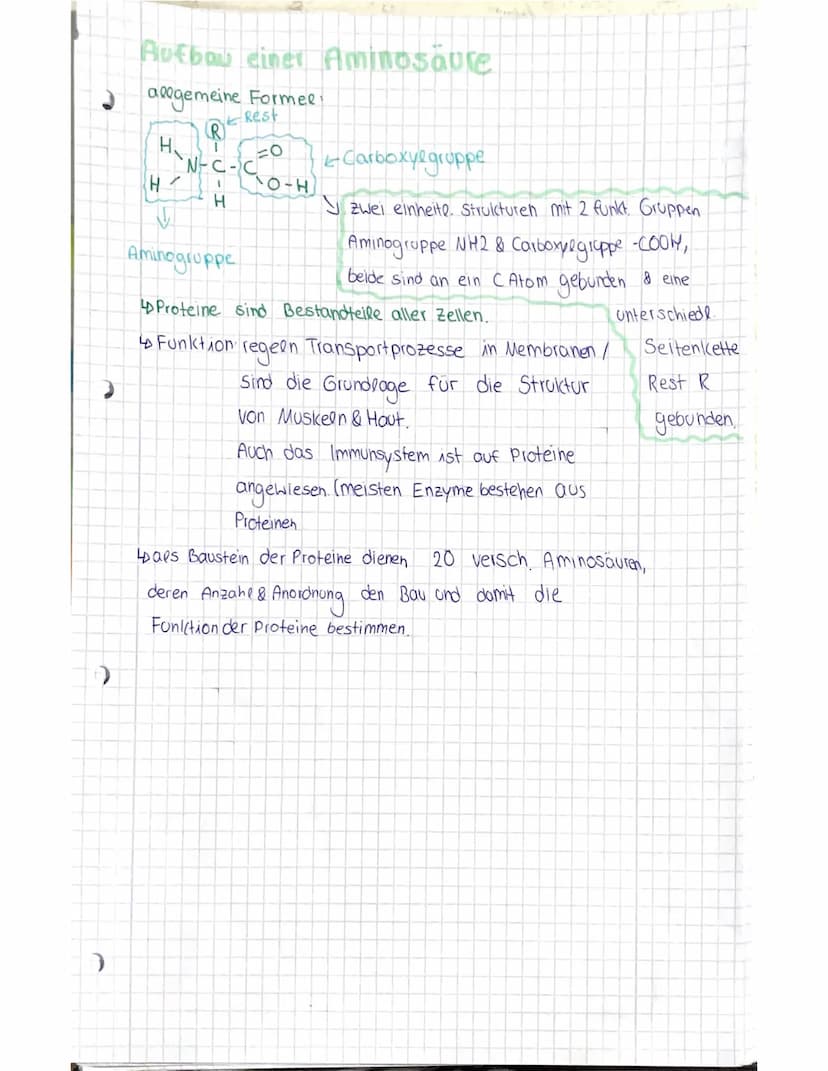 Aufbau einer Aminosäure
allgemeine Formel:
R ← Rest
H
N-C-C
=O
O-H
H
H
← Carboxylgruppe
Aminogruppe
↘ zwei einheitl. Strukturen mit 2 funkt. Gruppen
Aminogruppe NH2 & Carboxylgruppe -COOH,
beide sind an ein C Atom gebunden & eine
unterschiedl.
Seitenkette
Rest R
gebunden.
↳ Proteine sind Bestandteile aller Zellen.
↳ Funktion: regeln Transportprozesse in Membranen /
sind die Grundlage für die Struktur
von Muskeln & Haut.
Auch das Immunsystem ist auf Proteine
angewiesen. (meisten Enzyme bestehen aus
Proteinen
↳ als Baustein der Proteine dienen 20 versch. Aminosäuren,
deren Anzahl & Anordnung den Bau und damit die
Funktion der Proteine bestimmen.